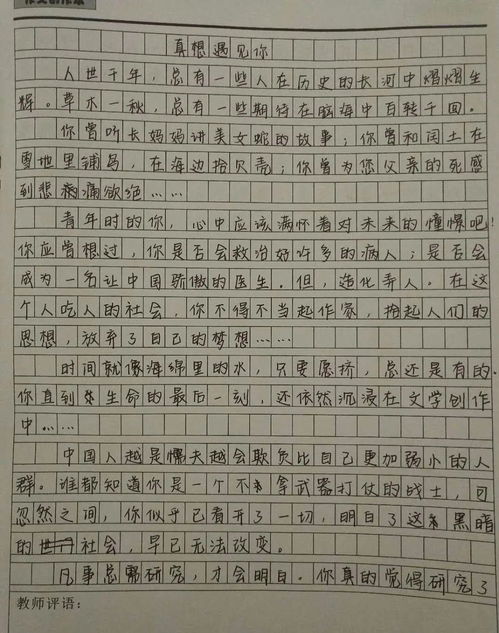 真想遇见你
人世千年，总有一些人在历史的长河中熠熠生
辉。草木一秋，总有一些期待在脑海中百转千回。
你曾听长妈妈讲美女蛇的故事；你曾和闰土在
雪地里铺鸟，在海边拾贝壳；你曾为您父亲的死感
到悲痛欲绝……
青年时的你，心中应该满怀着对未来的憧憬吧！
你应曾想过，你是否会救治好许多的病人；是否会
成为一名让中国骄傲的医生。但，造化弄人。在这
个人吃人的社会，你不得不当起作家，拾起人们的
思想，放弃了自己的梦想……
时间就像海绵里的水，只要愿挤，总还是有的.
你直到生命的最后一刻，还依然沉浸在文学创作
中……
中国人越是懦夫越会欺负比自己更加弱小的人
群。谁都知道你是一个不拿武器打仗的战士，可
忽然之间，你似乎已看开了一切，明白了这黑暗
的社会，早已无法改变。
凡事总需研究，才会明白。你真的觉得研究了
教师评语：